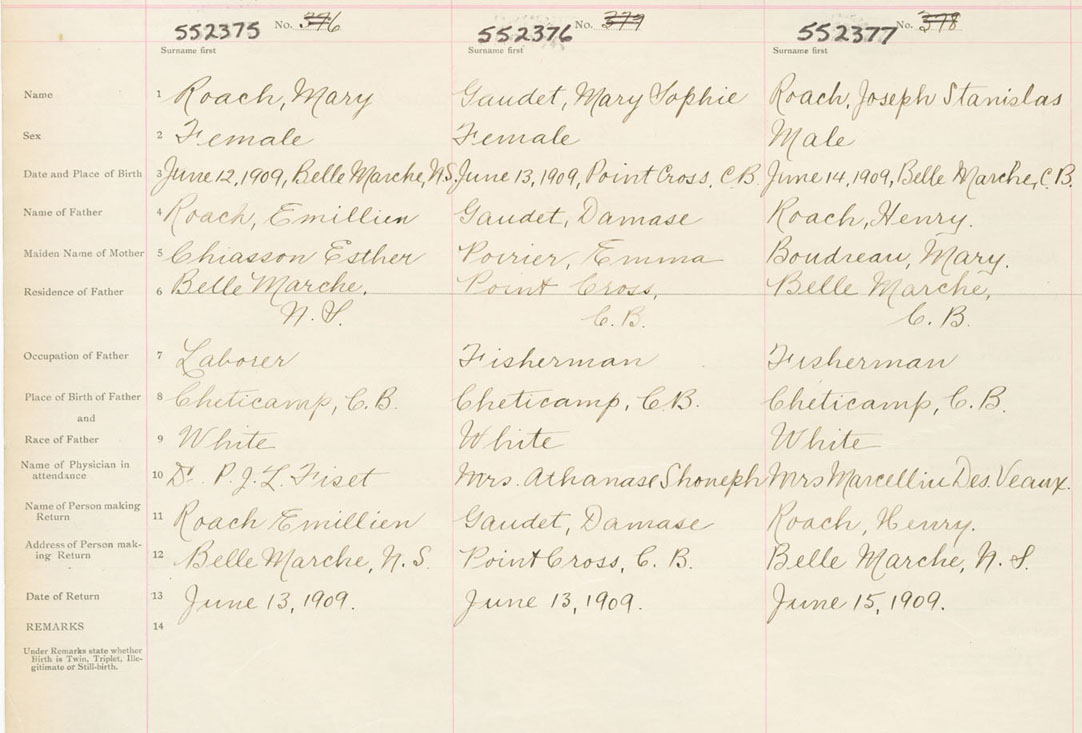 552375 No. 376 552376 No. 377 552377 No. 378
Surname first Surname first Surname first
Name 1 Roach, Mary Gaudet, Mary Sophie Roach, Joseph Stanislas
Sex 2 Female Female Male
Date and Place of Birth 3 June 12, 1909, Belle Marche, N.S. June 13, 1909, Point Cross, C.B. June 14, 1909, Belle Marche, C.B.
Name of Father 4 Roach, Emillien Gaudet, Damase Roach, Henry.
Maiden Name of Mother 5 Chiasson Esther Poirier, Emma Boudreau, Mary.
Residence of Father 6 Belle Marche, Point Cross, Belle Marche,
N.S. C.B. C.B.
Occupation of Father 7 Laborer Fisherman Fisherman
Place of Birth of Father 8 Cheticamp, C.B. Cheticamp, C.B. Cheticamp, C.B.
and
Race of Father 9 White White White
Name of Physician in
attendance 10 Dr. P.J.L. Fiset Mrs. Athanase Shoneph Mrs Marcellin Des. Veaux.
Name of Person making
Return 11 Roach Emillien Gaudet, Damase Roach, Henry.
Address of Person mak-
ing Return 12 Belle Marche, N.S. Point Cross, C.B. Belle Marche, N.S.
Date of Return 13 June 13, 1909. June 13, 1909. June 15, 1909.
REMARKS 14
Under Remarks state whether
Birth is Twin, Triplet, Ille-
gitimate or Still-birth.